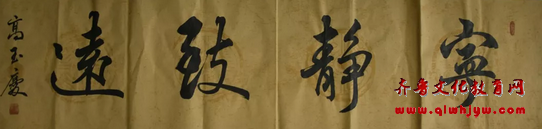 寧靜致遠
高玉慶
齐鲁文化教育网
www.qlwhjyw.com